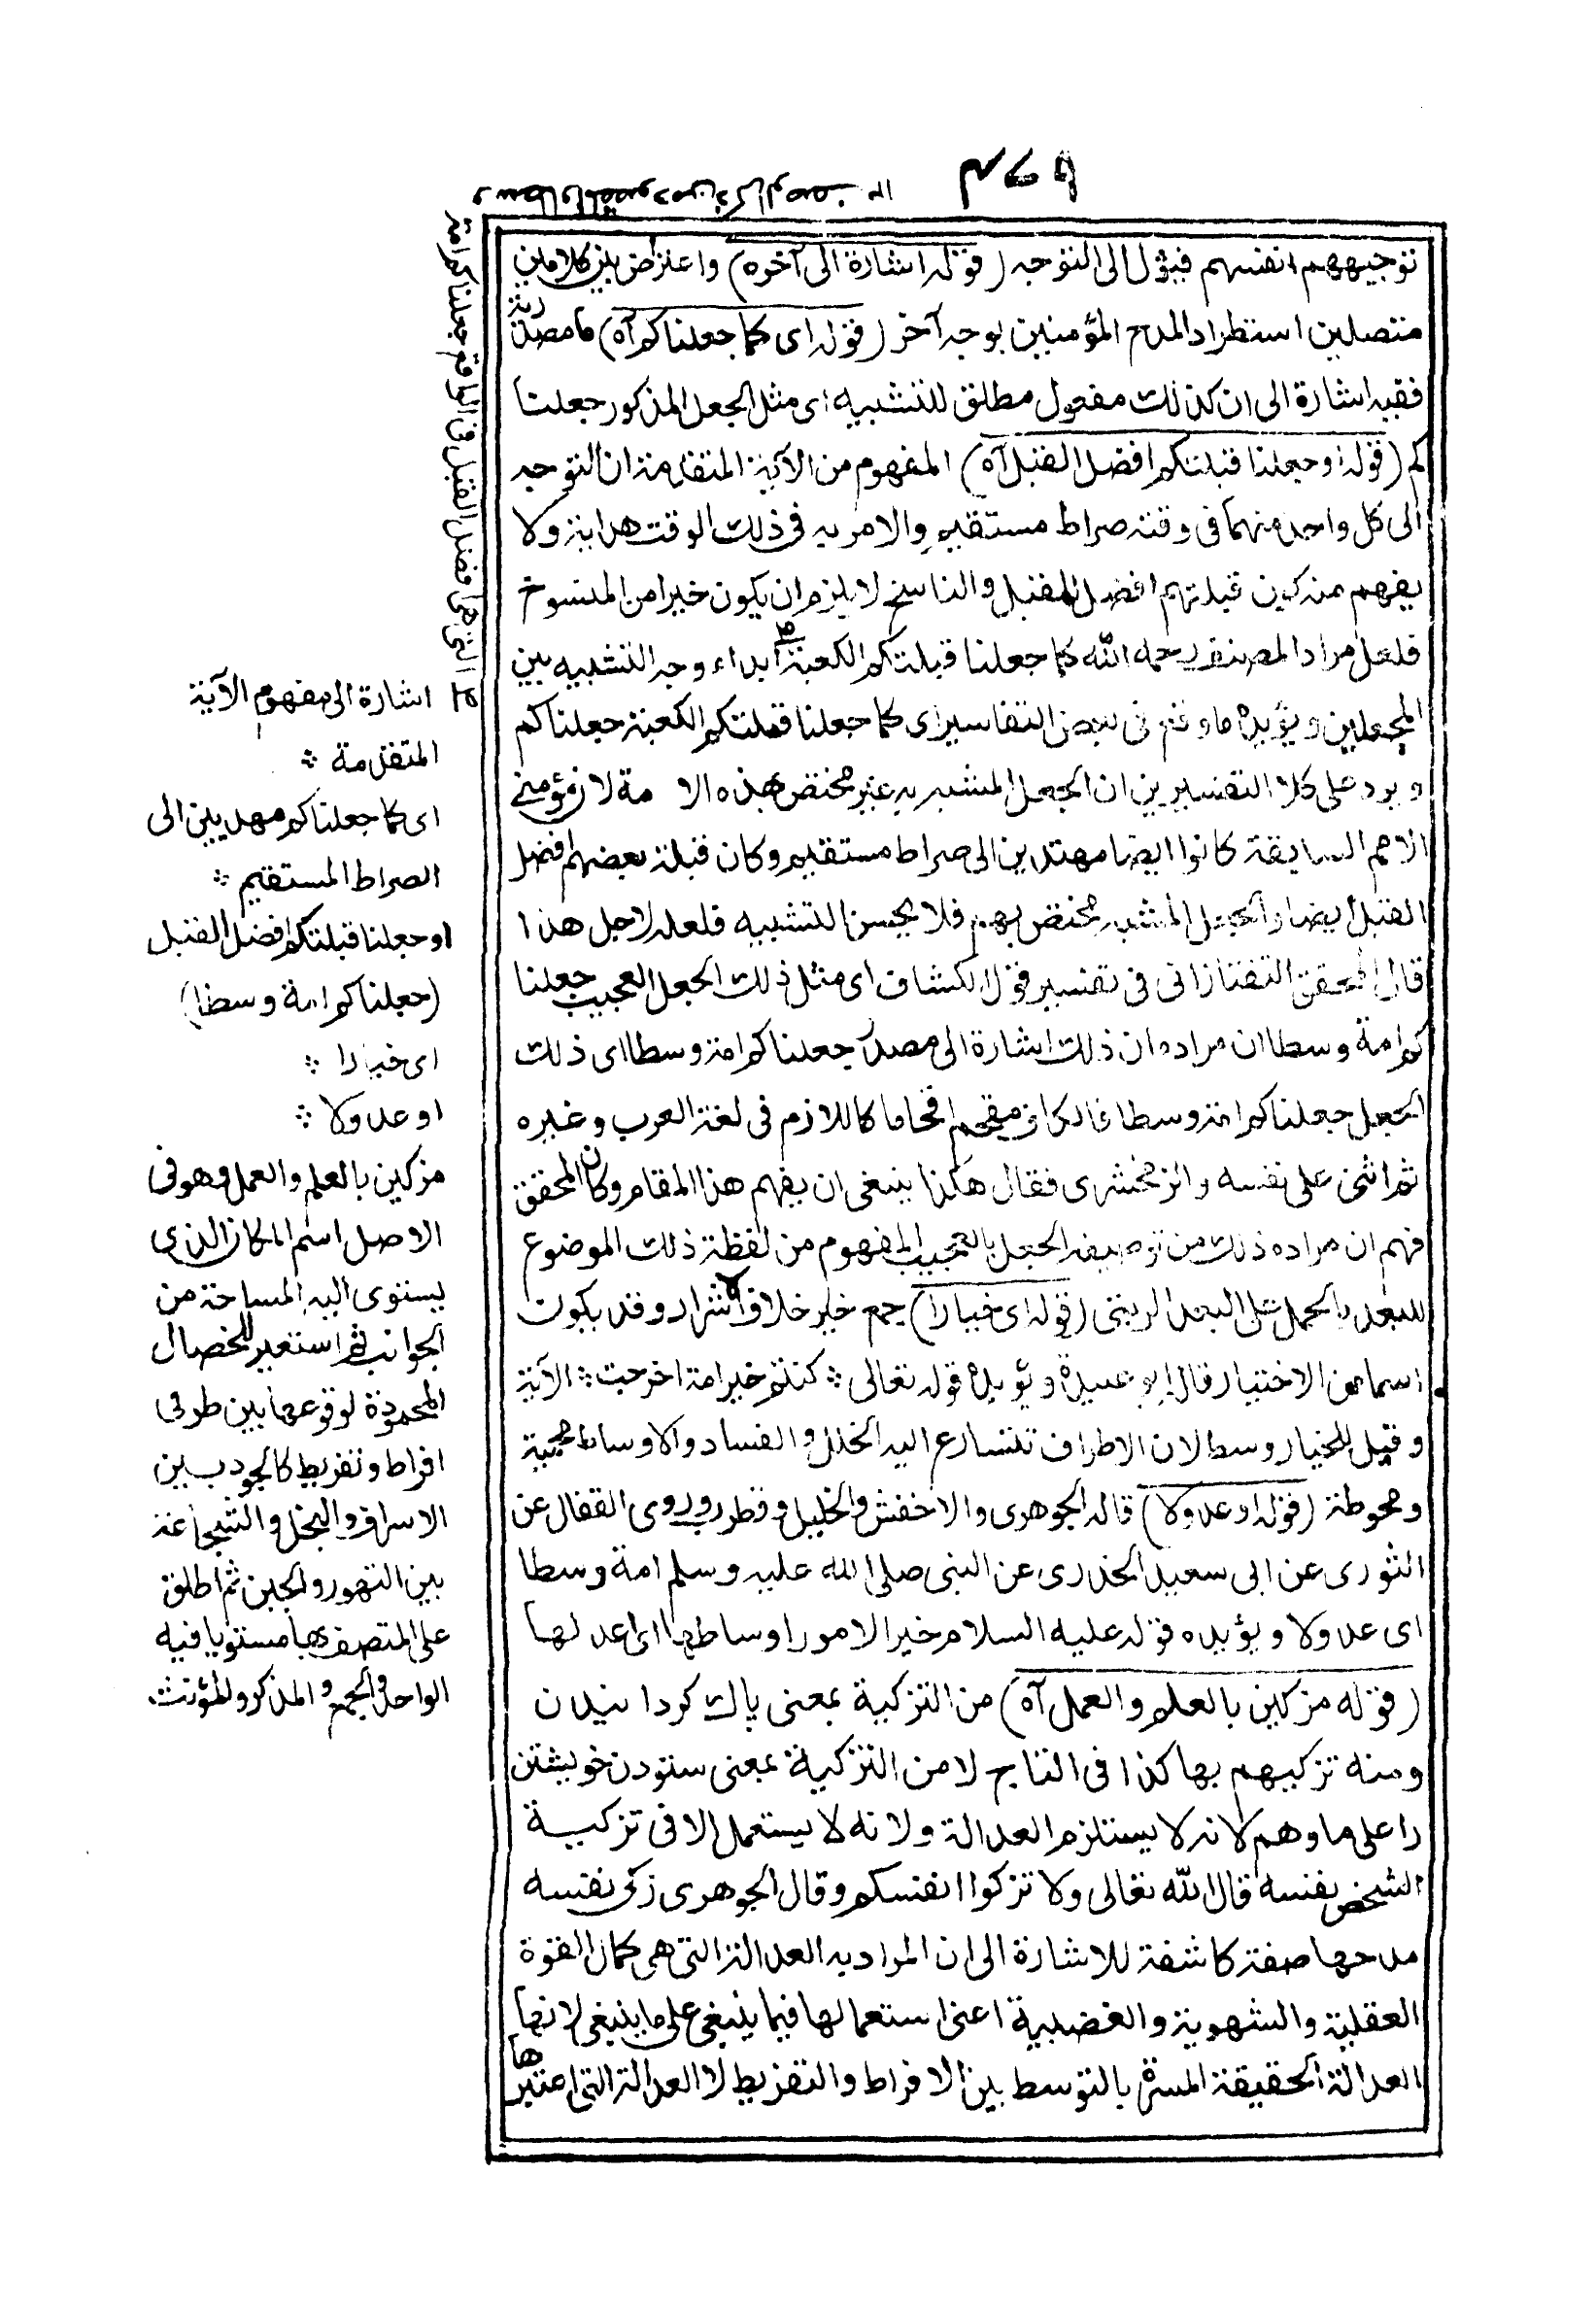 توجيههم انفسهم فيؤل الى التوجه (قوله اشارة الى آخره) واعتراض بين كلامين
متصلين استطراد المدح المؤمنين بوجه آخر (قوله اى كما جعلناكم آه) ما مصدرية
ففيه اشارة الى ان كذلك مفعول مطلق للتشبيه اى مثل الجعل المذكور جعلنا
كم (قوله او جعلنا قبلتكم افضل القبل آه) المفهوم من الآية المتقدمة ان التوجه
الى كل واحد منهما فى وقته صراط مستقيم والامر به فى ذلك الوقت هداية ولا
يفهم منه كون قبلتهم افضل القبل والناسخ لا يلزم ان يكون خيرا من المنسوخ
فلعل مراد المصنف رحمه الله كما جعلنا قبلتكم الكعبة ابداء وجه التشبيه بين
الجعلين ويؤيده ما وقع فى بعض التفاسير اى كما جعلنا قبلتكم الكعبة جعلناكم
ويرد على كلا التفسيرين ان الجعل المشبه به غير مختص بهذه الا مة لان مؤمنى
الامم السابقة كانوا ايضا مهتدين الى صراط مستقيم وكان قبلة بعضهم افضل
القبل ايضا والجعل المشبه مختص بهم فلا يحسن التشبيه فلعله لاجل هذا
قال المحقق التفتازانى فى تفسير قول الكشاف اى مثل ذلك الجعل العجيب جعلنا
كم امة وسطا ان مراده ان ذلك اشارة الى مصدر جعلناكم امة وسطا اى ذلك
الجعل جعلناكم امة وسطا فالكاف مقحم اقحاما كاللازم فى لغة العرب وغيره
ثم اثنى على نفسه والزمخشرى فقال هكذا ينبغى ان يفهم هذا المقام وكان المحقق
فهم ان مراده ذلك من توصيفه الجعل بالعجيب المفهوم من لفظة ذلك الموضوع
للبعد بالحمل على البعد الرتبى (قوله اى خيارا) جمع خير خلاف الاشرار وقد يكون
اسما من الاختيار قال ابو عبيدة ويؤيده قوله تعالى ؛ كنتم خير امة اخرجت ؛ الآية
وقيل للخيار وسط لان الاطراف تتسارع اليه الخلل والفساد والاوساط محمية
ومحوطة (قوله او عدولا) قاله الجوهرى والاخفش والخليل وقطرب وروى القفال عن
الثورى عن ابى سعيد الخدرى عن النبى صلى الله عليه وسلم امة وسطا
اى عدولا ويؤيده قوله عليه السلام خير الامور اوساطها اى اعدلها
(قوله مزكين بالعلم والعمل آه) من التزكية بمعنى پاك كردانيدن
ومنه تزكيهم بها كذا فى التاج لا من التزكية بمعنى ستودن خويشتن
را على ما وهم لانه لا يستلزم العدالة ولانه لا يستعمل الا فى تزكية
الشخص نفسه قال الله تعالى ولا تزكوا انفسكم وقال الجوهرى زكى نفسه
مدحها صفة كاشفة للاشارة الى ان المراد به العدالة التى هى كمال القوة
العقلية والشهوية والغضبية اعنى استعمالها فيما ينبغى على ما ينبغى لانها
العدالة الحقيقة المسماة بالتوسط بين الافراط والتفريط لا العدالة التى اعتبرها
وسطا والمقصود من ذكر الوصف ١٢
التى هى افضل القبل فى الواقع جعلناكم امة
اشارة الى مفهوم الآية
المتقدمة ؛
اى كما جعلناكم مهديين الى
الصراط المستقيم ؛
او جعلنا قبلتكم افضل القبل
(جعلناكم امة وسطا)
اى خيارا ؛
او عدولا ؛
مزكين بالعلم والعمل وهو فى
الاصل اسم المكان الذى
يستوى اليه المساحة من
الجوانب ثم استعير للخصال
المحمودة لوقوعها بين طرفى
افراط وتفريط كالجود بين
الاسراف والبخل والشجاعة
بين التهور والجبن ثم اطلق
على المتصف بها مستويا فيه
الواحد والجمع والمذكر والمؤنث